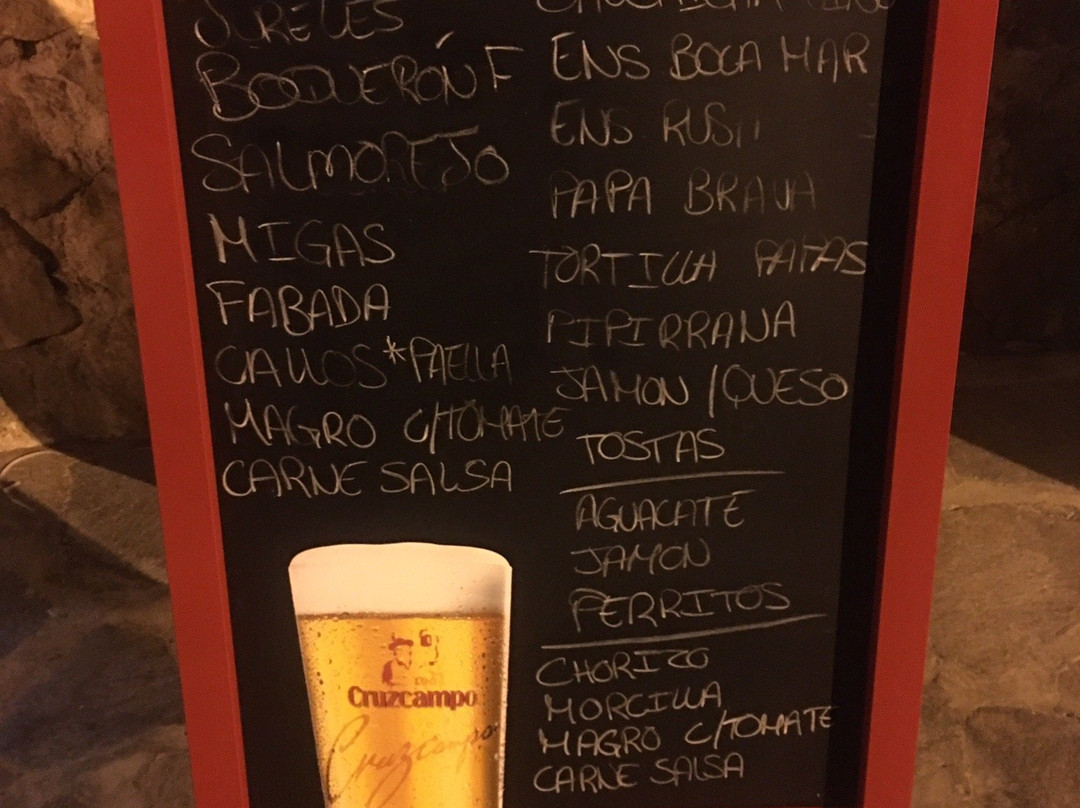 JURELES
BOQUERÓN F
SALMOREJO
MIGAS
FABADA
CALLOS *PAELLA
MAGRO C/TOMATE
CARNE SALSA
Cruzcampo
Cruzcampo
ENS BOCA MAR
ENS RUSA
PAPA BRAVA
TORTILLA PATAS
PIPIRRANA
JAMON / QUESO
TOSTAS
AGUACATE
JAMON
PERRITOS
CHORIZO
MORCILLA
MAGRO C/TOMATE
CARNE SALSA